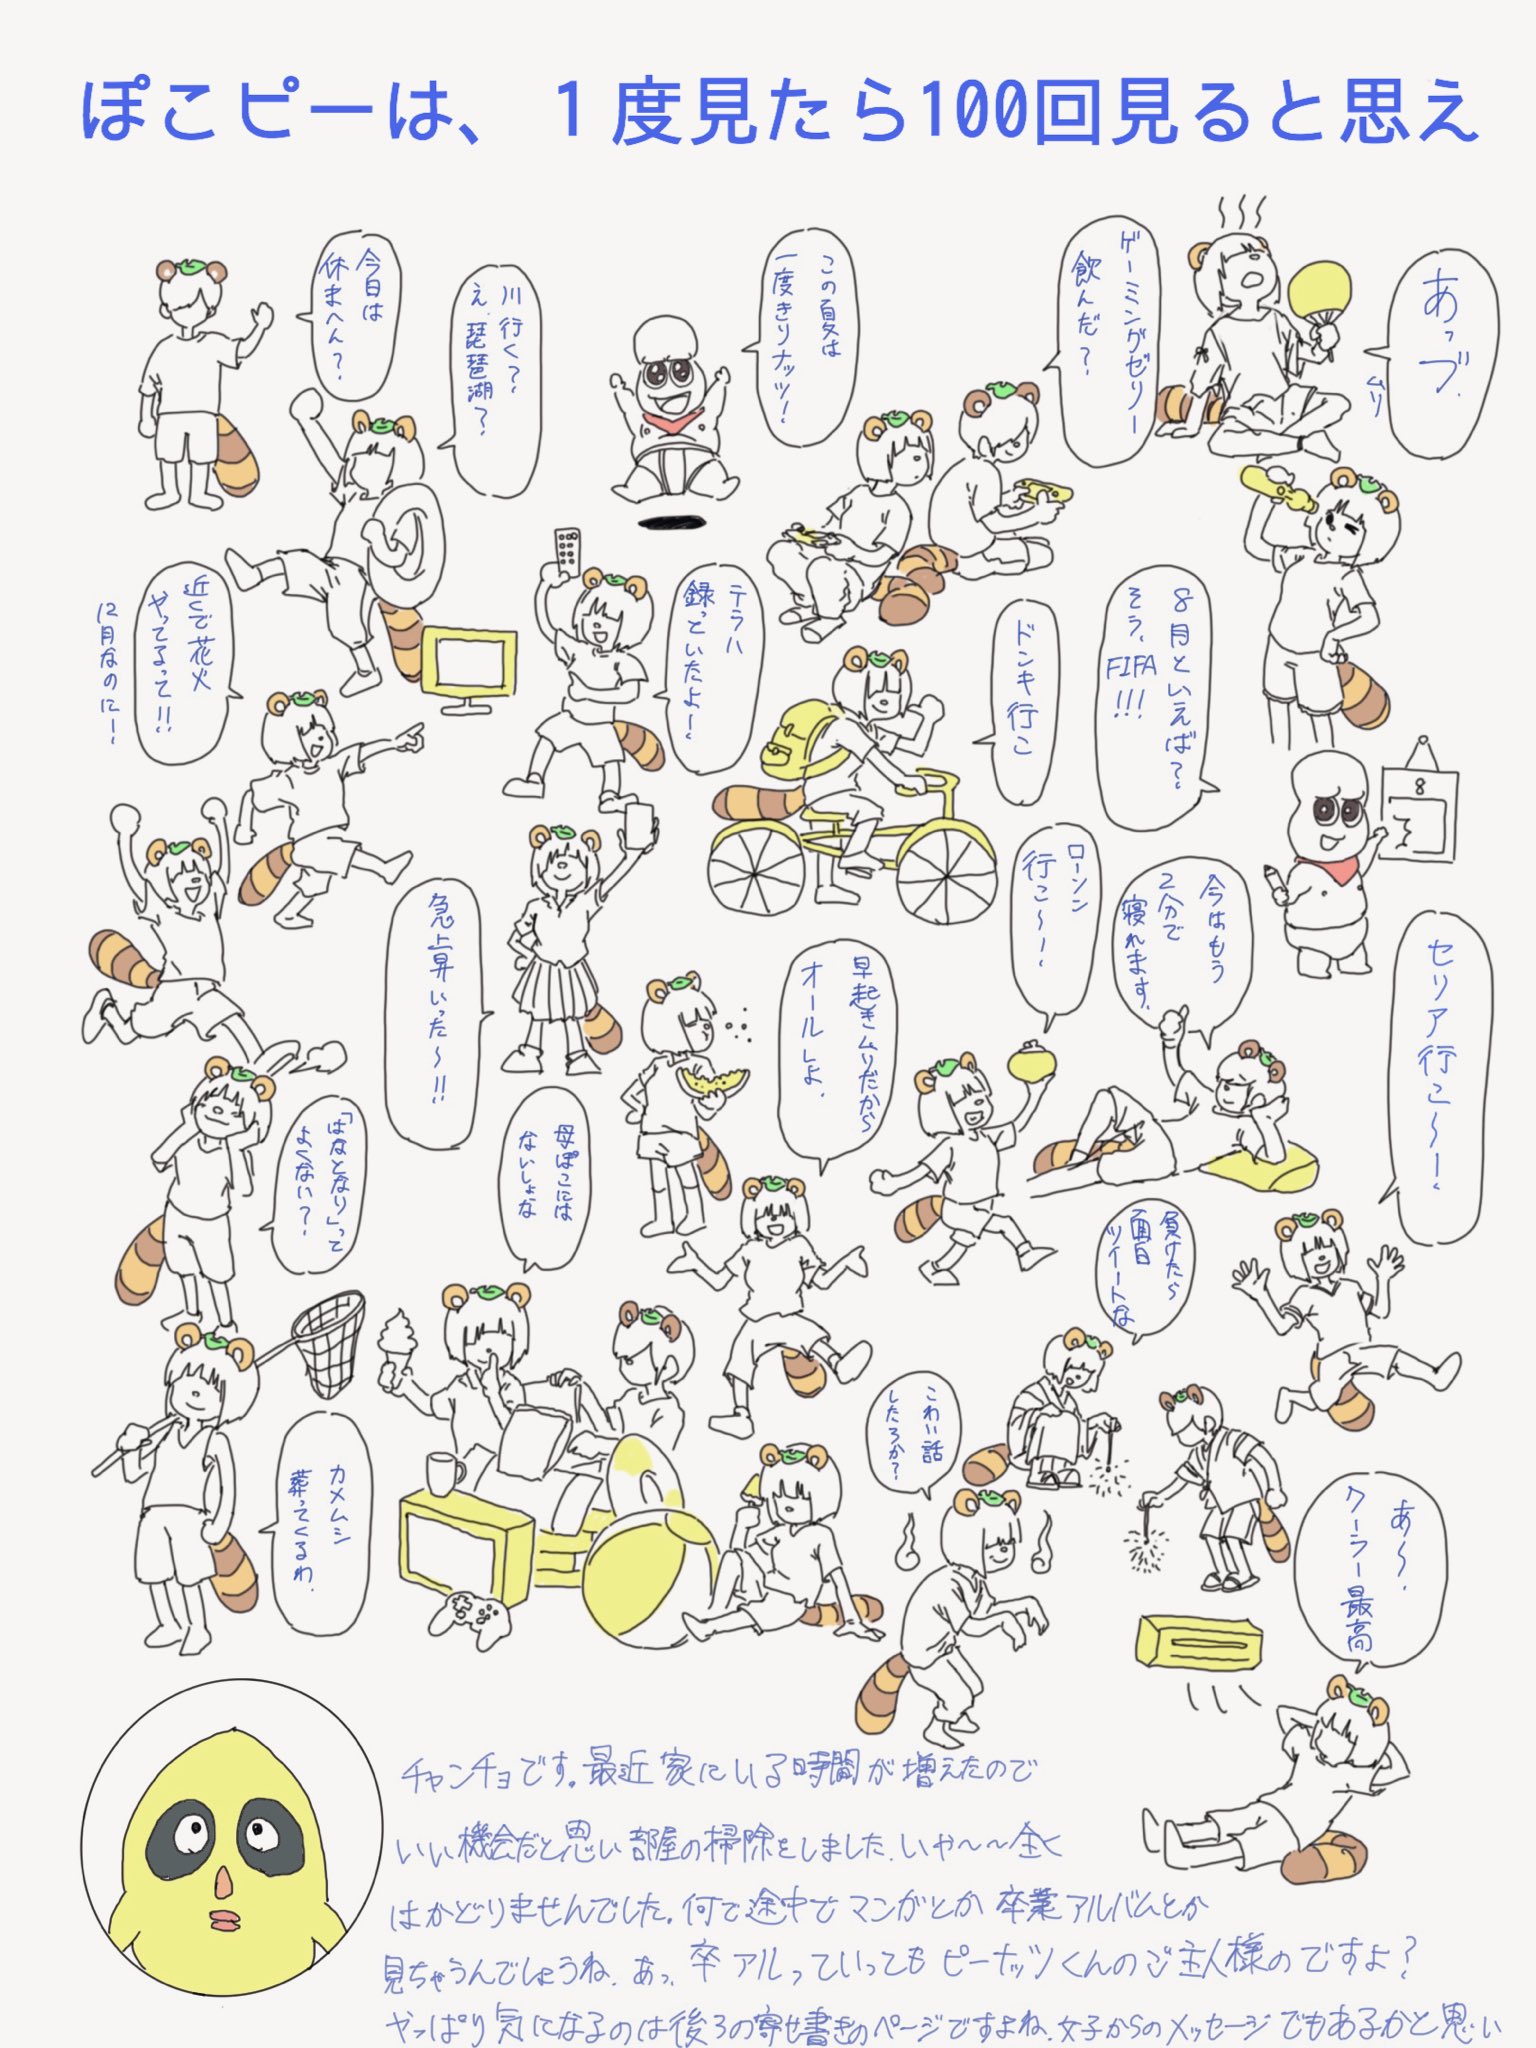 ぽこピーは、１度見たら100回見ると思え
あっづ.
ムリ
ゲーミングゼリー
飲んだ？
この夏は
一度きりナッツ！
川行く？
え、琵琶湖？
今日は
休まへん？
8月といえば？
そう、
FIFA
!!!
ドンキ行こ
テラハ
録っといたよ！
近くで花火
やってるって!!
12月なのに！
セリア行こ〜！
今はもう
2分で
寝れます。
ローソン
行こ〜！
早起きムリだから
オールしよ.
急上昇いった〜!!
母ぽこには
ないしょな
「はなとなり」って
よくない？
負けたら
面白
ツイートな
こわい話
したろか？
カメムシ
葬ってくるわ.
あ〜.
クーラー最高
チャンチョです。最近家にいる時間が増えたので
いい機会だと思い部屋の掃除をしました.いや〜〜全く
はかどりませんでした。何で途中でマンガとか卒業アルバムとか
見ちゃうんでしょうね. あっ、卒アルっていってもピーナッツくんのご主人様のですよ？
やっぱり気になるのは後ろの寄せ書きのページですよね.女子からのメッセージでもあるかと思い